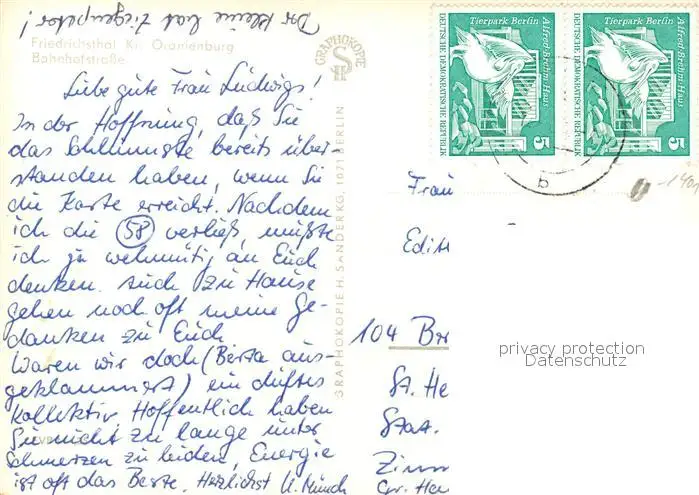 Der kleine hat Ziegenpeter!
Friedrichsthal Kr. Oranienburg
Bahnhofstraße
Liebe gute Frau Ludwigs!
In der Hoffnung, daß Sie
das Schlimmste bereits über-
standen haben, wenn Sie
die Karte erreicht. Nachdem
ich die 58 verließ, mußte
ich ja wehmütig an Euch
denken. Auch zu Hause
gehen noch oft meine Ge-
danken zu Euch
Waren wir doch (Berta aus-
geklammert) ein duftes
Kollektiv Hoffentlich haben
Sie nicht zu lange unter
Schmerzen zu leiden, Energie
ist oft das Beste. Herzlichst U. Münch
GRAPHOKOPIE
GRAPHOKOPIE H. SANDER KG. 1071 BERLIN
Tierpark Berlin
Alfred-Brehm-Haus
DEUTSCHE DEMOKRATISCHE REPUBLIK
5
Tierpark Berlin
Alfred-Brehm-Haus
DEUTSCHE DEMOKRATISCHE REPUBLIK
5
b
Frau
Edit
104 Ber
St. He
Stat.
Zimm
privacy protection
Datenschutz